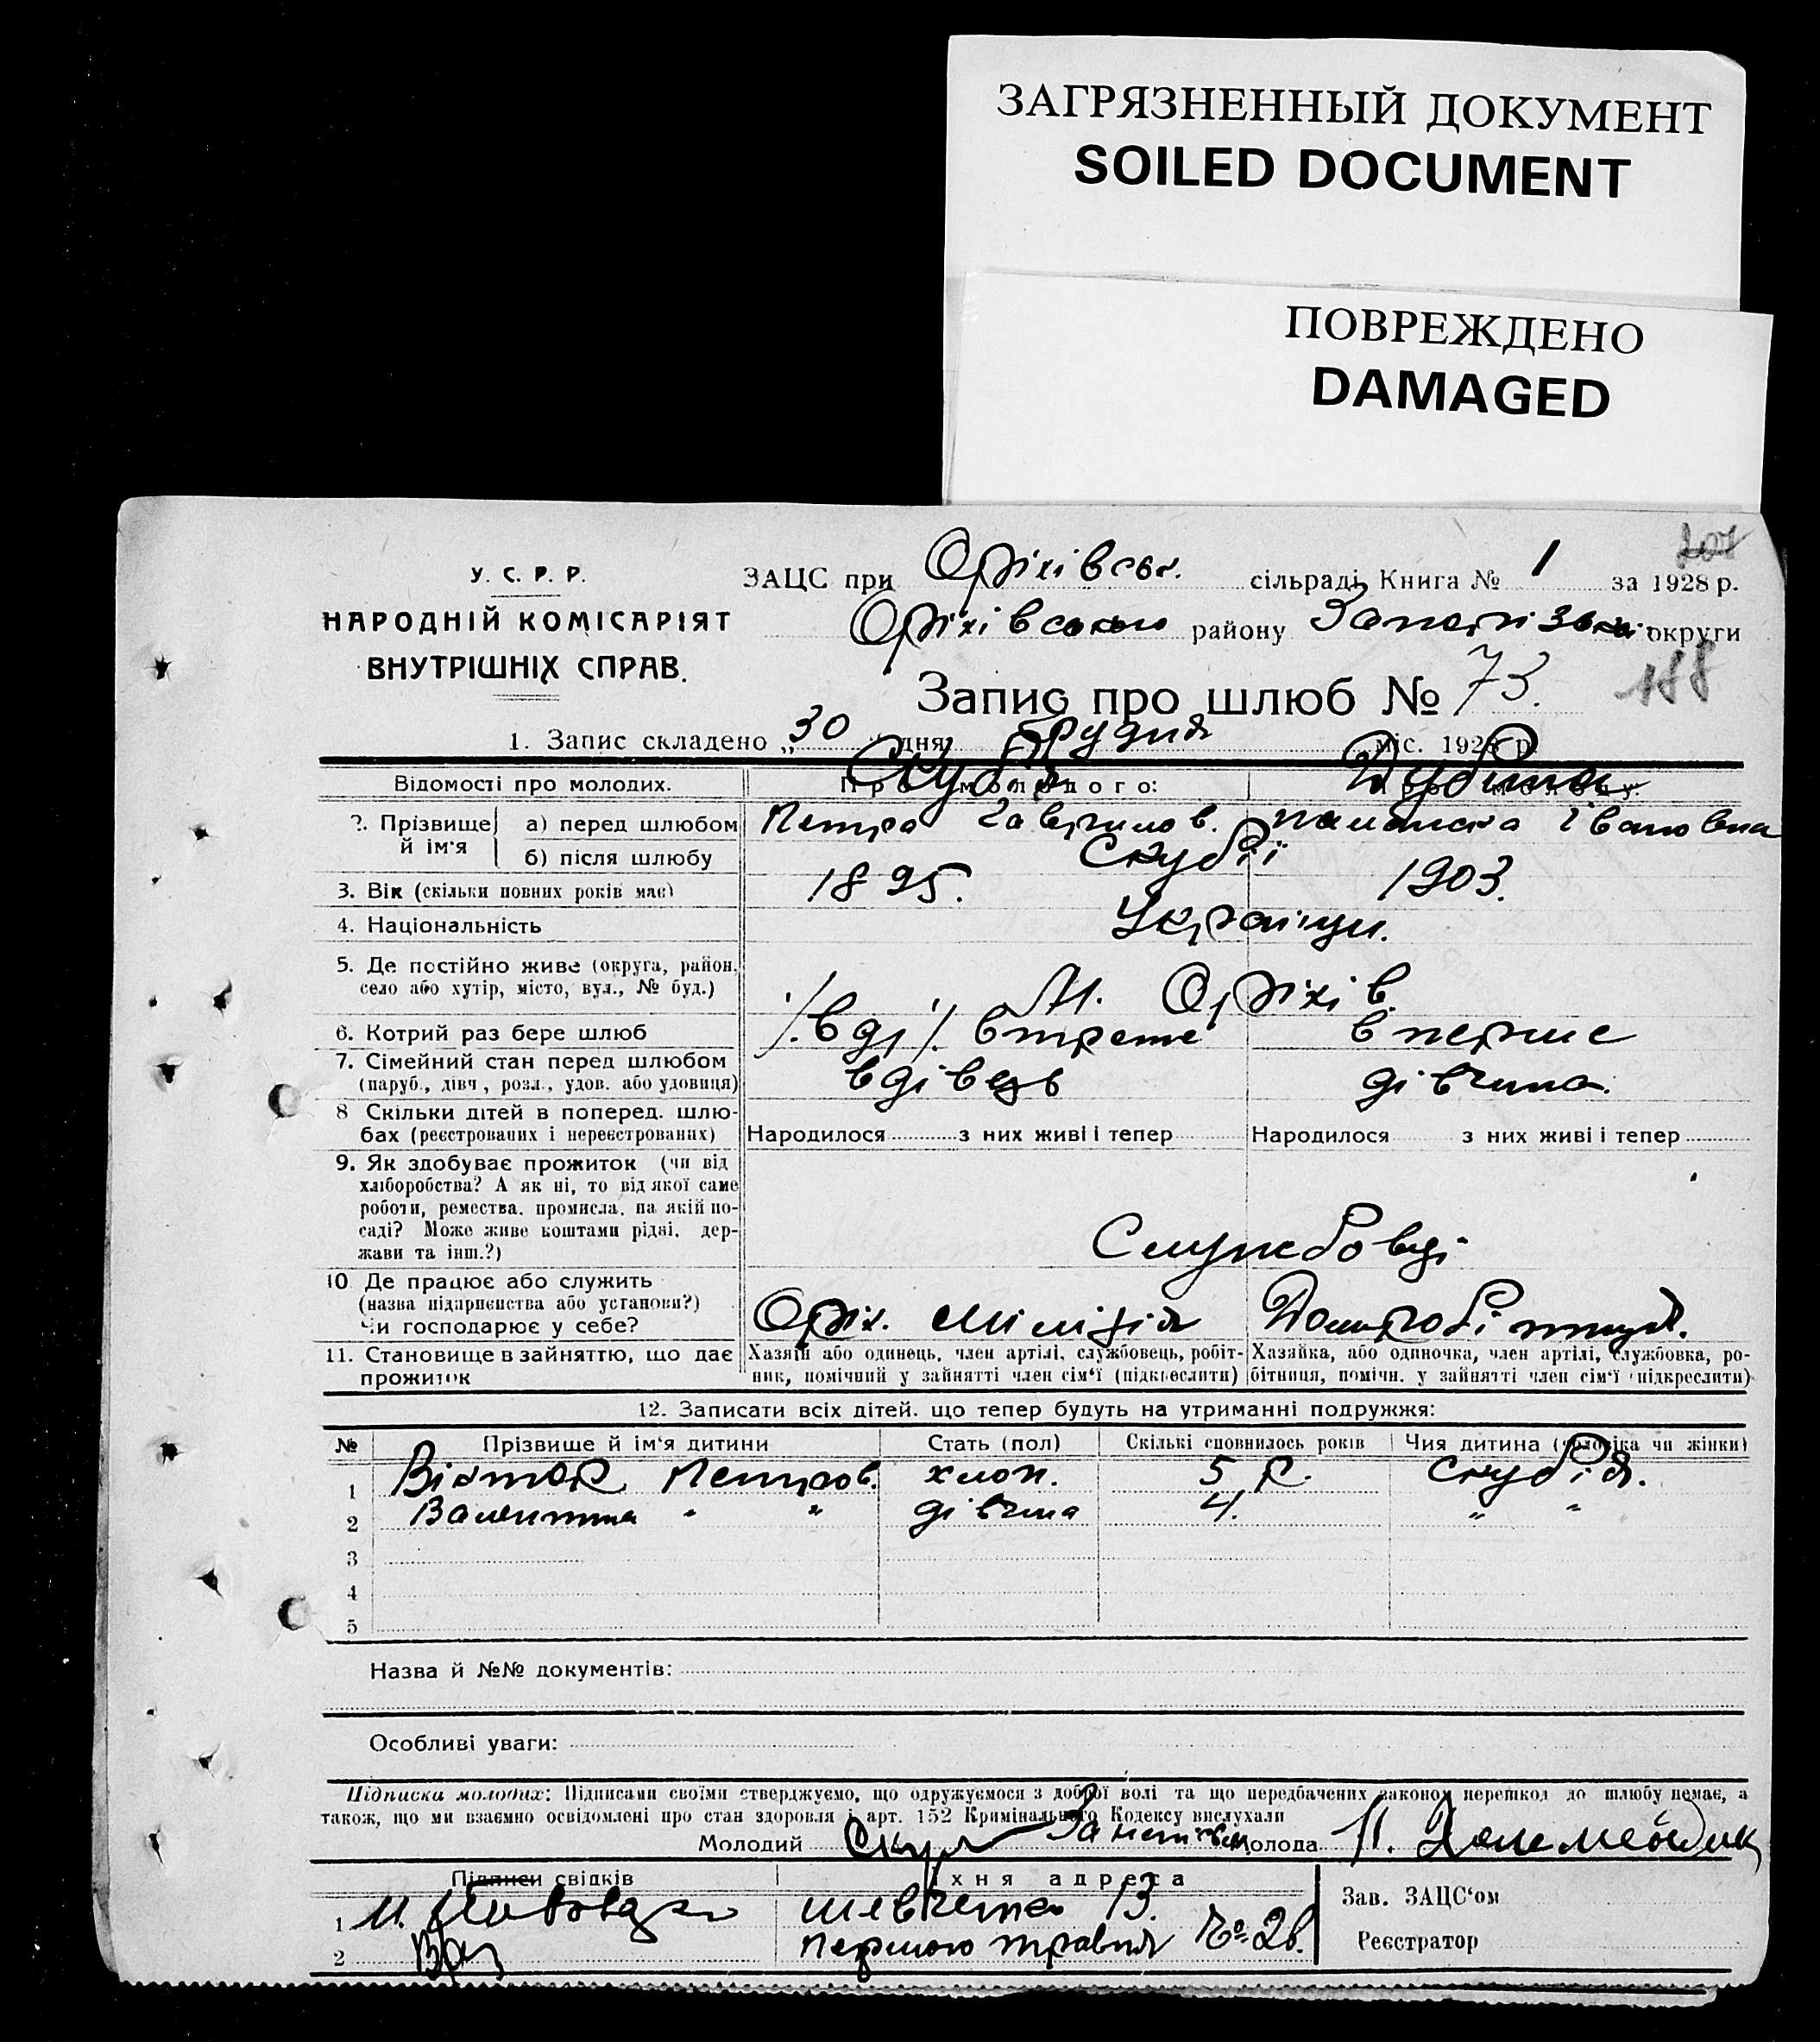 ЗАГРЯЗНЕННЫЙ ДОКУМЕНТ
SOILED DOCUMENT
ПОВРЕЖДЕНО
DAMAGED
У. С. Р. Р.
НАРОДНІЙ КОМІСАРІЯТ
ВНУТРІШНІХ СПРАВ.
ЗАЦС при Оріхівськ. сільраді Книга № 1 за 1928 р.
Оріхівського району округи
188
Запис про шлюб № 73.
1. Запис складено „30 дня Грудня міс. 1928 р.
Відомості про молодих.
Про молодого:
Скубій
Дубина
2. Прізвище й ім'я
а) перед шлюбом Петро Гаврилов. Івановна
б) після шлюбу Скубії
3. Вік (скільки повних років має) 1895. 1903.
4. Національність Українці.
5. Де постійно живе (округа, район, село або хутір, місто, вул., № буд.) М. Оріхів
6. Котрий раз бере шлюб втретє вперше
7. Сімейний стан перед шлюбом вдівець дівчина.
(паруб., дівч., розл., удов. або удовиця)
8 Скільки дітей в поперед. шлюбах (реєстрованих і нереєстрованих)
Народилося з них живі і тепер Народилося з них живі і тепер
9. Як здобуває прожиток (чи від хліборобства? А як ні, то від якої саме роботи, ремества, промисла, на якій посаді? Може живе коштами рідні, держави та інш.?)
Службовці
10 Де працює або служить (назва підприємства або установи?) Чи господарює у себе?
Оріх. Міліція
11. Становище в зайняттю, що дає прожиток
Хазяїн або одинець, член артілі, службовець, робітник, помічний у зайнятті член сім'ї (підкреслити)
Хазяйка, або одиночка, член артілі, службовка, робітниця, помічн. у зайнятті член сім'ї (підкреслити)
12. Записати всіх дітей, що тепер будуть на утриманні подружжя:
№ Прізвище й ім'я дитини Стать (пол) Скількі сповнилось років Чия дитина (чоловіка чи жінки)
1 Віктор Петров. хлоп. 5 р. Скубія.
2 Валентина " " дівчина 4. " "
3
4
5
Назва й №№ документів:
Особливі уваги:
Підписка молодих: Підписами своїми стверджуємо, що одружуємося з доброї волі та що передбачених законом перешкод до шлюбу немає, а
також, що ми взаємно освідомлені про стан здоровля і арт. 152 Кримінального Кодексу вислухали
Молодий Молода
Підписи свідків Їхня адреса
1 Шевченка 13.
2 Першого травня № 2в.
Зав. ЗАЦС'ом
Реєстратор